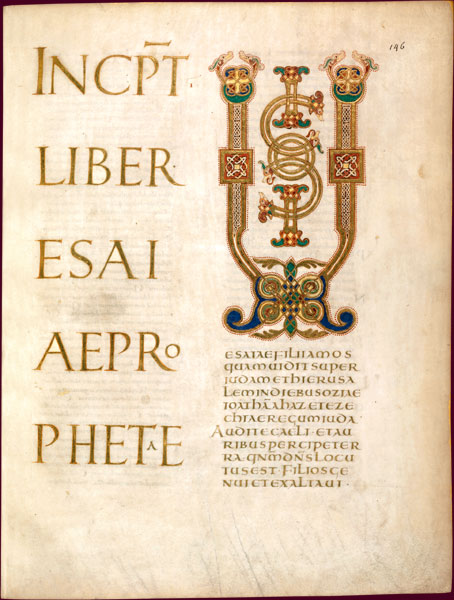 146
INCP̄T
LIBER·
ESAI
AEPRO
PHETAE
VISIO
ESAIAEFILIIAMOS
QUAMUIDITSUPER
IUDAMETHIERUSA
LEMINDIEBUSOZIAE
IOATHĀAHAZETEZE
CHIAEREGUMIUDA
AUDITECAELI·ETAU
RIBUSPERCIPETER
RAQNM̄DN̄SLOCU
TUSEST·FILIOSGE
NUIETEXALTAUI·